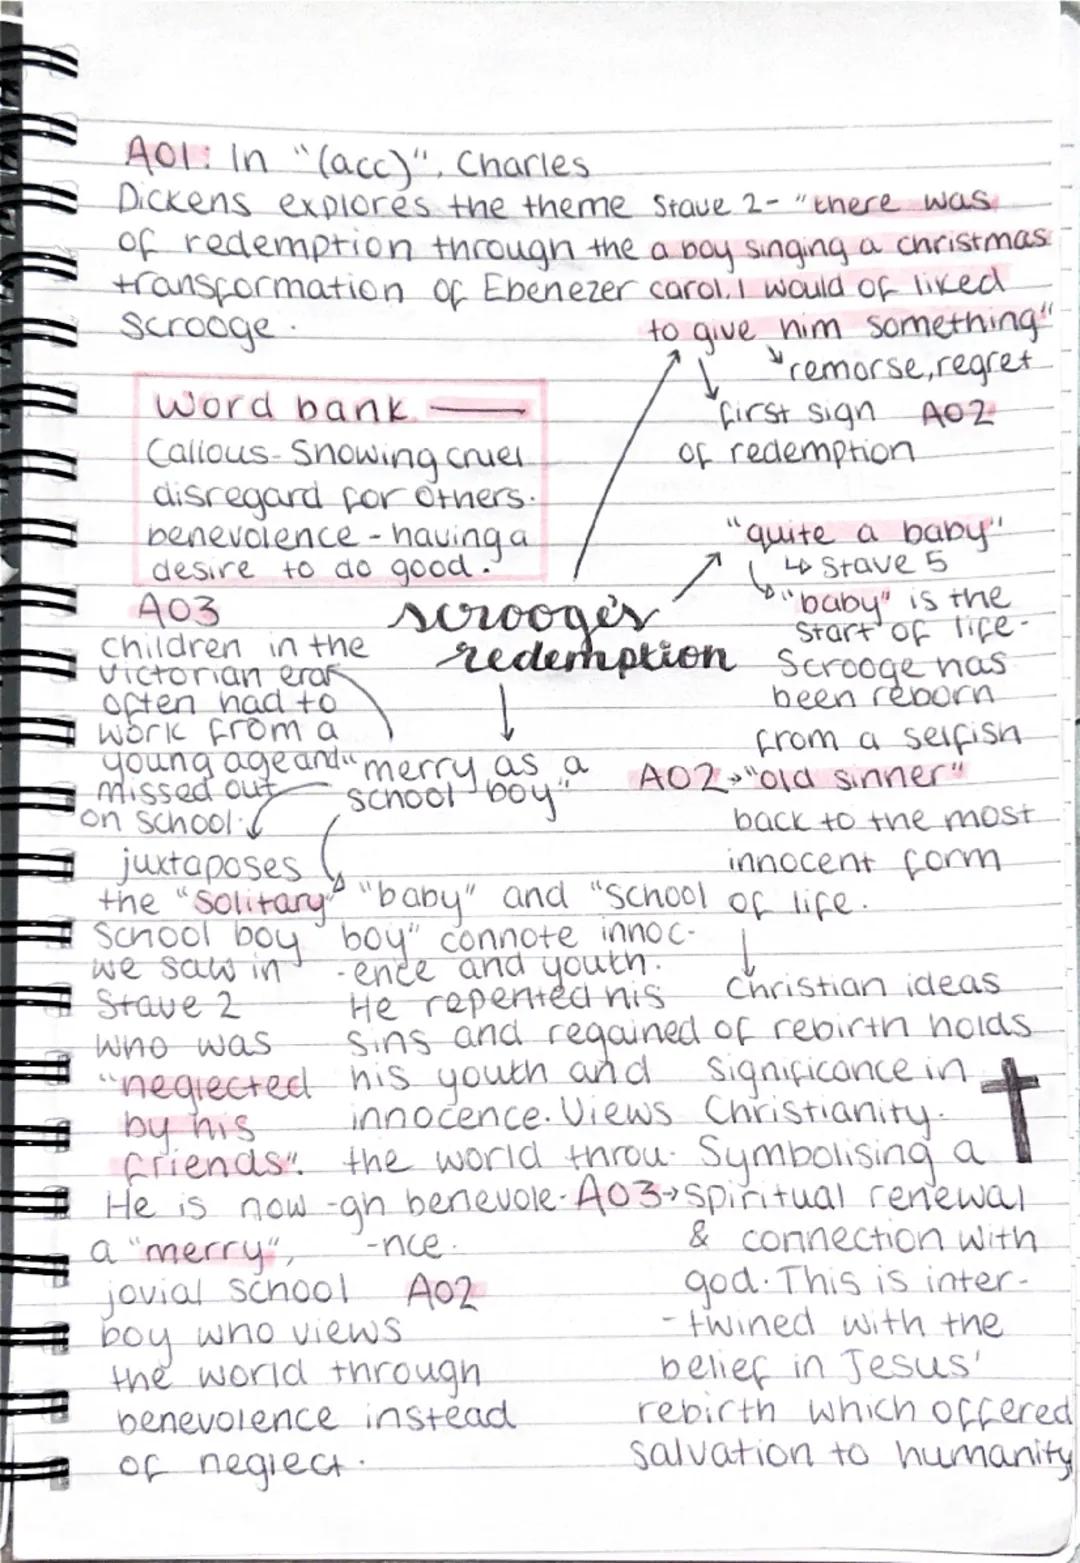 AO1: In "(acc)", Charles
Dickens explores the theme
of redemption through the
transformation of Ebenezer
Scrooge.
Stave 2- "there was
a boy singing a christmas
carol. I would of liked
to give him something"
remorse, regret
first sign AO2
of redemption
Word bank
Callous- Showing cruel
disregard for others.
benevolence - having a
desire to do good.
scrooge's
redemption
"quite a baby"
↳ Stave 5
"baby" is the
start of life-
Scrooge has
been reborn
from a selfish
AO2 → "old sinner"
back to the most
innocent form
of life.
Christian ideas
of rebirth holds
significance in
Christianity.
Symbolising a
AO3→ spiritual renewal
& connection with
god. This is inter-
-twined with the
belief in Jesus'
rebirth which offered
salvation to humanity
AO3
children in the
Victorian era
often had to
work from a
young age and
missed out
on school.
"merry as a
school boy"
juxtaposes
the "solitary"
school boy
we saw in
Stave 2
who was
"neglected
by his
friends".
He is now
a "merry",
jovial school
boy who views
the world through
benevolence instead
of neglect.
"baby" and "school
boy" connote innoc-
-ence and youth.
He repented his
sins and regained
his youth and
innocence. Views
the world throu-
-gh benevole-
-nce.
AO2